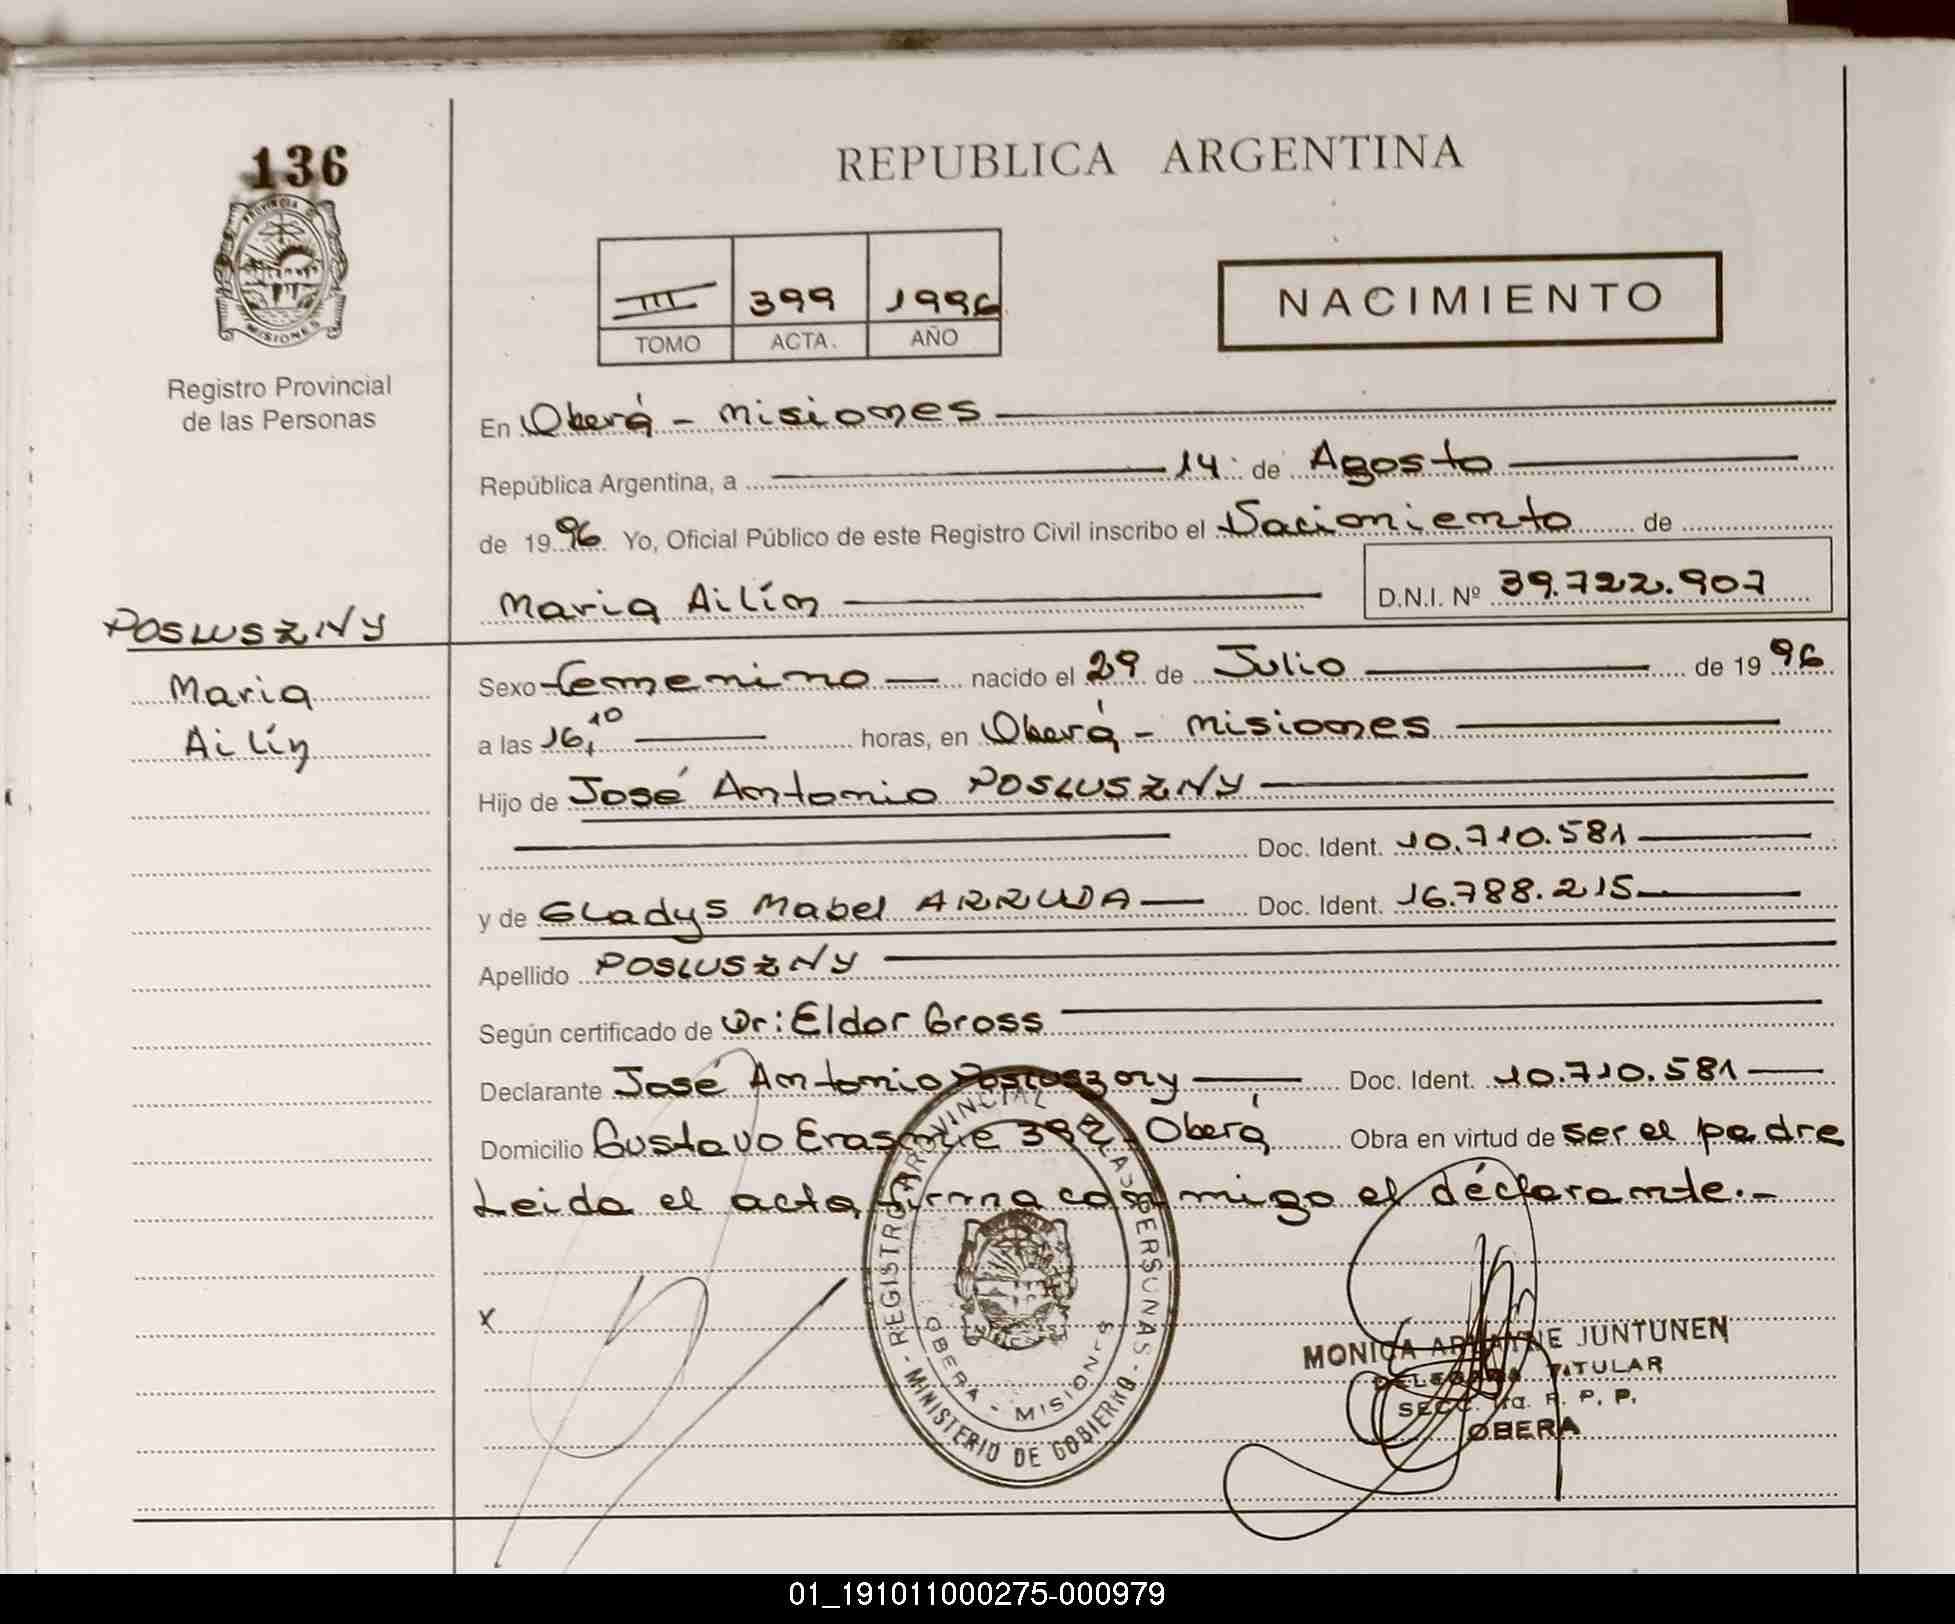 136
REPUBLICA ARGENTINA
III 399 1996
TOMO ACTA. AÑO
NACIMIENTO
PROVINCIA D MISIONES
Registro Provincial
de las Personas
En Oberá - Misiones
República Argentina, a 14 de Agosto
de 1996 Yo, Oficial Público de este Registro Civil inscribo el Nacimiento de
Maria Ailín D.N.I. Nº 39.722.907
POSLUSZNY
Maria
Ailín
Sexo femenino nacido el 29 de Julio de 1996
a las 16,10 horas, en Oberá - Misiones
Hijo de José Antonio POSLUSZNY
Doc. Ident. 10.710.581
y de Gladys Mabel ARRUDA Doc. Ident. 16.788.215
Apellido POSLUSZNY
Según certificado de Dr: Eldor Gross
Declarante José Antonio Posluszny Doc. Ident. 10.710.581
Domicilio Gustavo 392 - Oberá Obra en virtud de ser el padre
Leida el acta, firma conmigo el declarante.-
x
REGISTRO PROVINCIAL DE LAS PERSONAS - MINISTERIO DE GOBIERNO -
OBERA - MISIONES
MONICA JUNTUNEN
DELEGADA TITULAR
SECC. 1ra. R. P. P.
OBERA
01_191011000275-000979